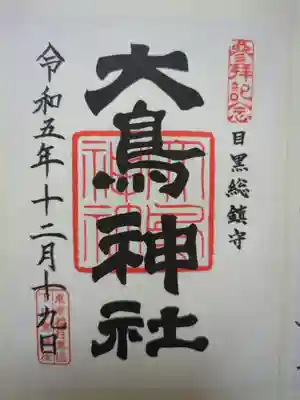 參拜記念
目黒総鎮守
大鳥神社
令和五年十二月十九日